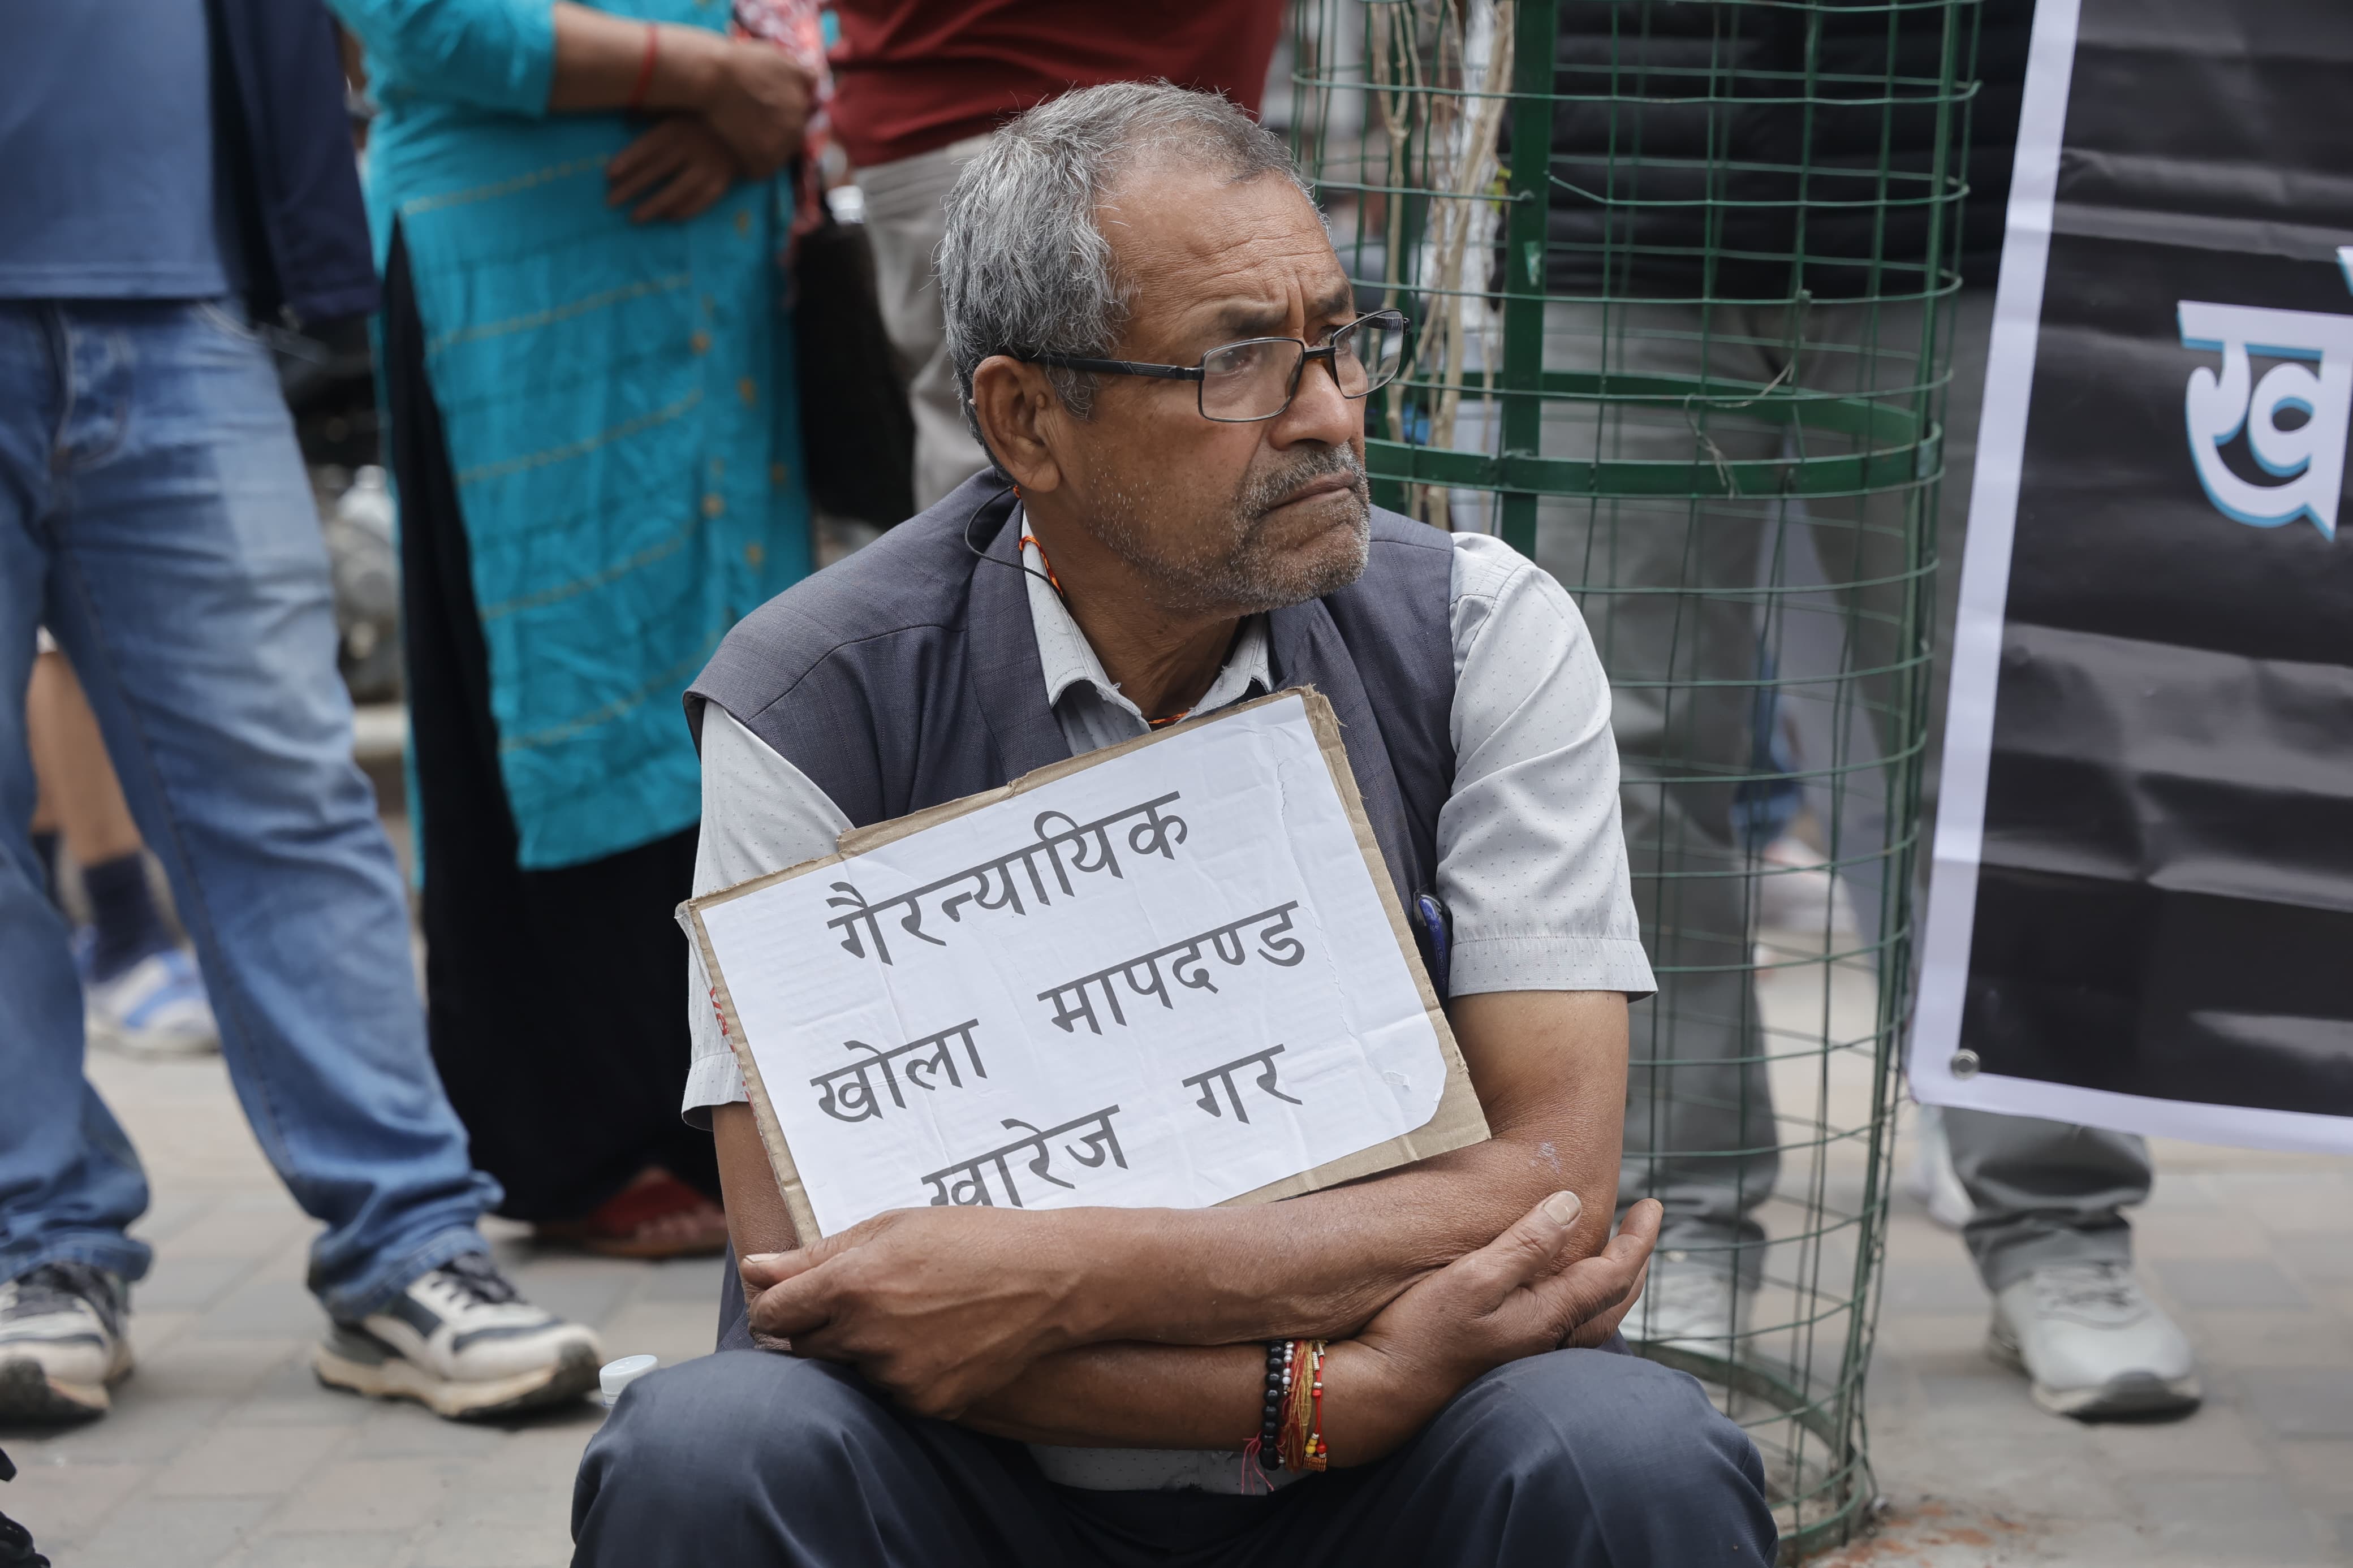 गैरन्यायिक
खोला मापदण्ड
खारेज गर